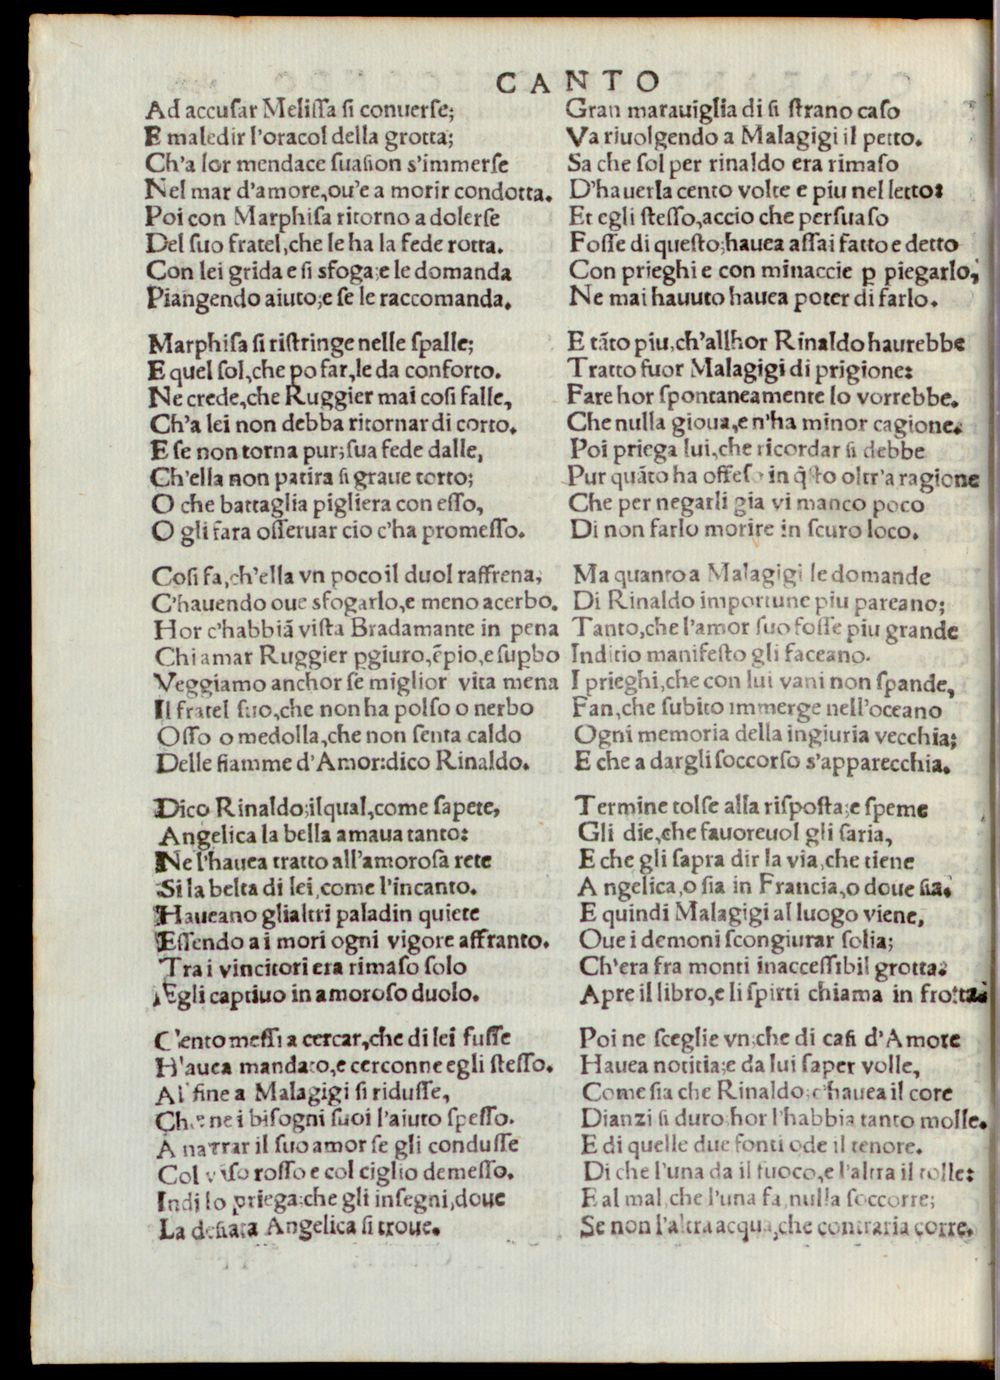 CANTO
Ad accusar Melissa si conuerse;
E maledir l'oracol della grotta;
Ch'a lor mendace suasion s'immerse
Nel mar d'amore, ou'e a morir condotta.
Poi con Marphisa ritorno a dolerse
Del suo fratel, che le ha la fede rotta.
Con lei grida e si sfoga; e le domanda
Piangendo aiuto; e se le raccomanda.
Marphisa si ristringe nelle spalle;
E quel sol, che po far, le da conforto.
Ne crede, che Ruggier mai cosi falle,
Ch'a lei non debba ritornar di corto.
E se non torna pur; sua fede dalle,
Ch'ella non patira si graue torto;
O che battaglia pigliera con esso,
O gli fara osseruar cio c'ha promesso.
Cosi fa, ch'ella vn poco il duol raffrena,
C'hauendo oue sfogarlo, e meno acerbo.
Hor c'habbiã vista Bradamante in pena
Chiamar Ruggier pgiuro, ẽpio, e supbo
Veggiamo anchor se miglior vita mena
Il fratel suo, che non ha polso o nerbo
Osso o medolla, che non senta caldo
Delle fiamme d'Amor: dico Rinaldo.
Dico Rinaldo; ilqual, come sapete,
Angelica la bella amaua tanto:
Ne l'hauea tratto all'amorosa rete
Si la belta di lei, come l'incanto.
Haueano glialtri paladin quiete
Essendo a i mori ogni vigore affranto.
Tra i vincitori era rimaso solo
Egli captiuo in amoroso duolo.
Cento messi a cercar, che di lei fusse
H'auea mandato, e cerconne egli stesso.
Al fine a Malagigi si ridusse,
Che ne i bisogni suoi l'aiuto spesso.
A narrar il suo amor se gli condusse
Col viso rosso e col ciglio demesso.
Indi lo priega; che gli insegni, doue
La desiata Angelica si troue.
Gran marauiglia di si strano caso
Va riuolgendo a Malagigi il petto.
Sa che sol per rinaldo era rimaso
D'hauerla cento volte e piu nel letto:
Et egli stesso, accio che persuaso
Fosse di questo; hauea assai fatto e detto
Con prieghi e con minaccie ꝑ piegarlo,
Ne mai hauuto hauea poter di farlo.
E tãto piu, ch'allhor Rinaldo haurebbe
Tratto fuor Malagigi di prigione:
Fare hor spontaneamente lo vorrebbe.
Che nulla gioua, e n'ha minor cagione.
Poi priega lui, che ricordar si debbe
Pur quãto ha offeso in q̃sto oltr'a ragione
Che per negarli gia vi manco poco
Di non farlo morire in scuro loco.
Ma quanto a Malagigi le domande
Di Rinaldo importune piu pareano;
Tanto, che l'amor suo fosse piu grande
Inditio manifesto gli faceano.
I prieghi, che con lui vani non spande,
Fan, che subito immerge nell'oceano
Ogni memoria della ingiuria vecchia;
E che a dargli soccorso s'apparecchia.
Termine tolse alla risposta; e speme
Gli die, che fauoreuol gli saria,
E che gli sapra dir la via, che tiene
Angelica, o sia in Francia, o doue sia.
E quindi Malagigi al luogo viene,
Oue i demoni scongiurar solia;
Ch'era fra monti inaccessibil grotta:
Apre il libro, e li spirti chiama in frotta.
Poi ne sceglie vn; che di casi d'Amore
Hauea notitia; e da lui saper volle,
Come sia che Rinaldo; c'hauea il core
Dianzi si duro hor l'habbia tanto molle.
E di quelle due fonti ode il tenore.
Di che l'una da il fuoco, e l'altra il tolle:
E al mal, che l'una fa, nulla soccorre;
Se non l'altra acqua, che contraria corre.